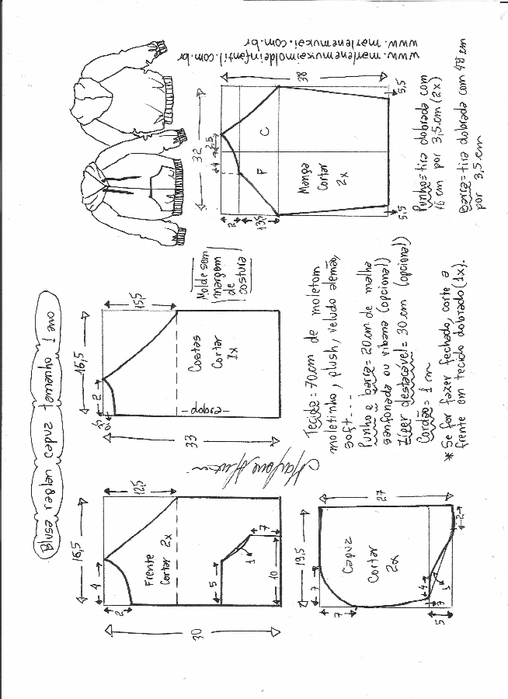 Blusa raglan capuz tamanho 1 ano
16,5
4
2
12,5
Frente
cortar 2x
5
7
1
10
30
16,5
2
15,5
Costas
Cortar
1x
dobra
33
Molde sem
margem
de
costura
32
2,5
4
2
13,5
F
C
Manga
Cortar
2x
38
5,5
5,5
www.marlenemukaimoldeinfantil.com.br
www.marlenemukai.com.br
13,5
7
7
Capuz
Cortar
2x
27
4
1
3
5
2
Marlene Mukai
Tecido = 70 cm de moletom
moletinho, plush, veludo alemão,
soft...
Punho e barra = 20 cm de malha
sanfonada ou ribana (opcional)
Zíper destacável = 30 cm (opcional)
Cordão = 1 cm
* Se for fazer fechado, corte a
frente em tecido dobrado (1x).
Punho = tira dobrada com
16 cm por 3,5 cm (2x)
Barra = tira dobrada com 48 cm
por 3,5 cm